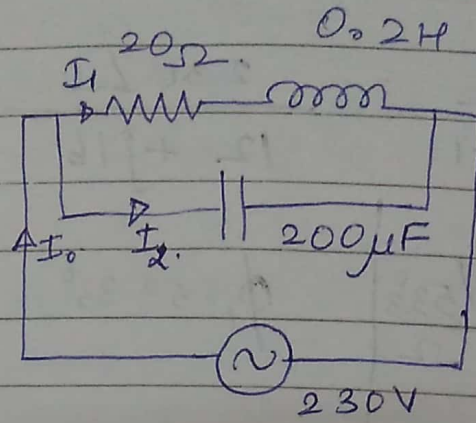 20Ω. 0.2H
I1
I2. 200μF
I0.
230V